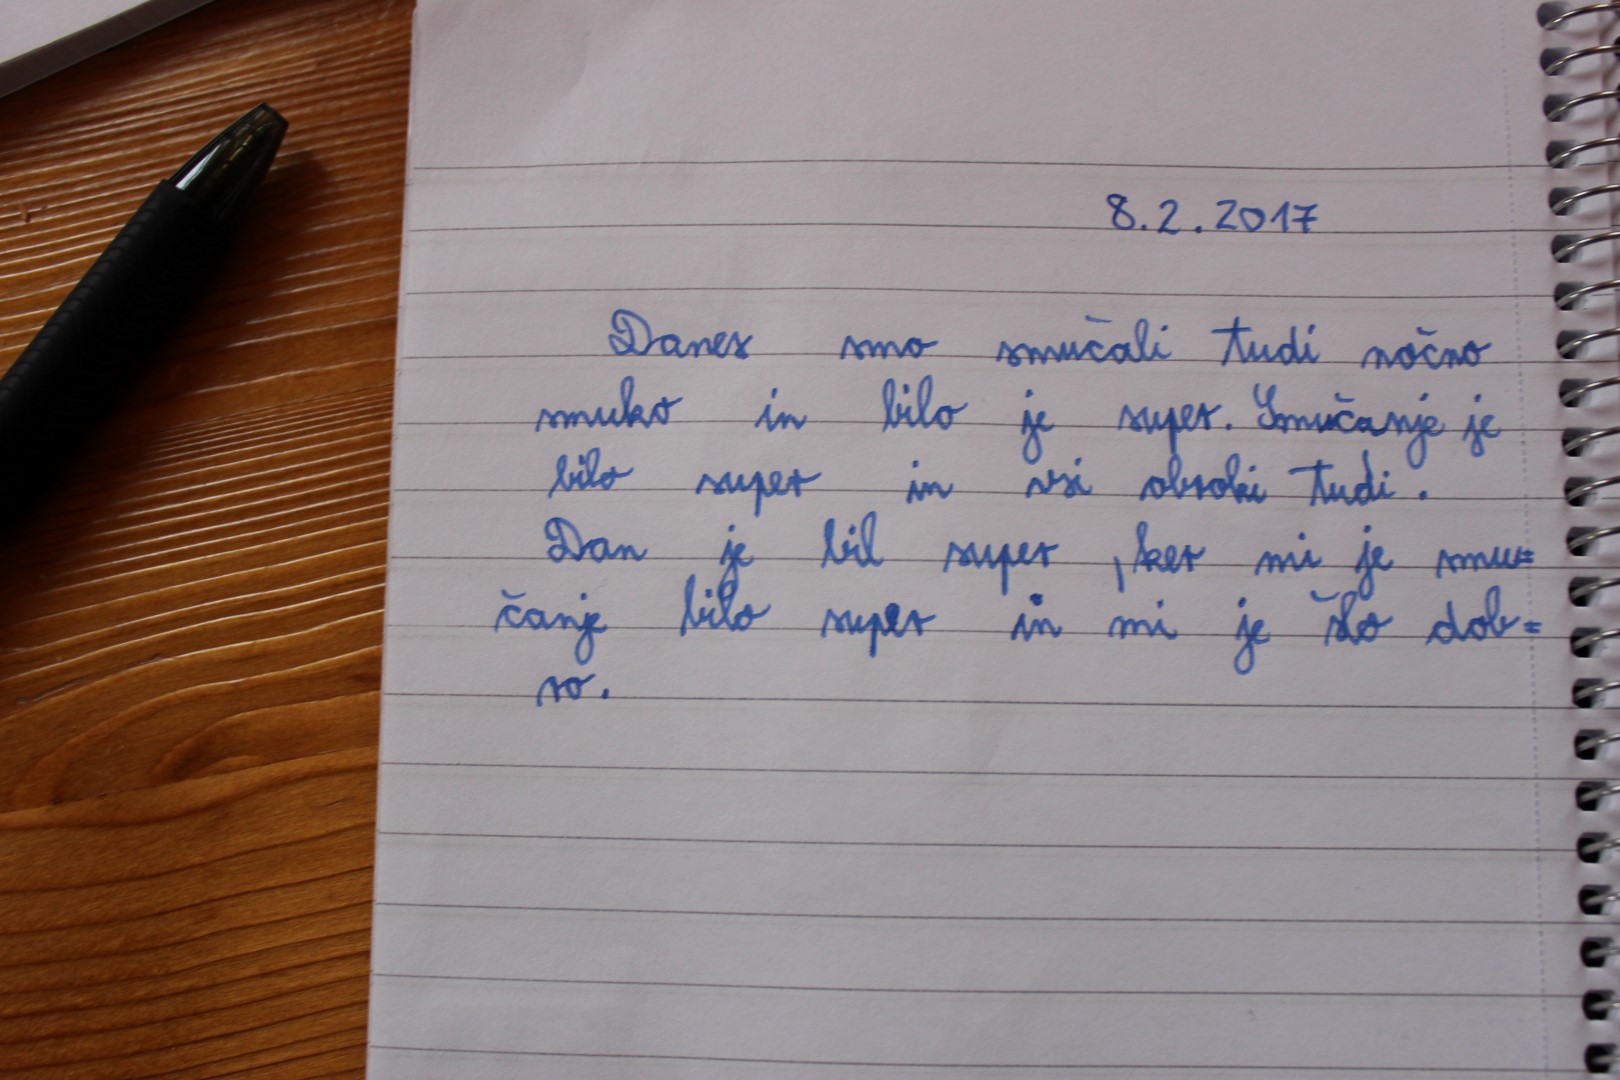 8.2.2017
Danes smo smučali tudi nočno
smuko in bilo je super. Smučanje je
bilo super in vsi obroki tudi.
Dan je bil super, ker mi je smu=
čanje bilo super in mi je šlo dob=
ro.